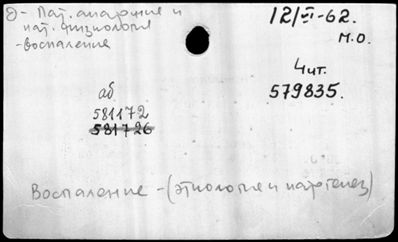 д- Пат. анатомия и
пат. физиология
-воспаление
12/VI-62.
М.О.
Чит.
579835.
аб
581172
581726
Воспаление - (этиология и патогенез)